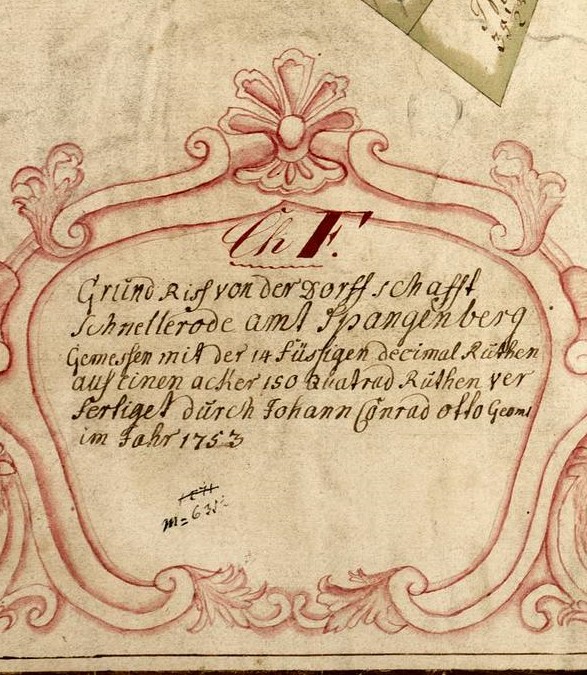 Ch F.
Grund Riss von der Dorffschafft
Schnellerode amt Spangenberg
Gemessen mit der 14 füssigen decimal Ruthen
auf einen acker 150 Quatrad Ruthen ver
fertiget durch Johann Conrad Otto Geom:
im Jahr 1753
m=